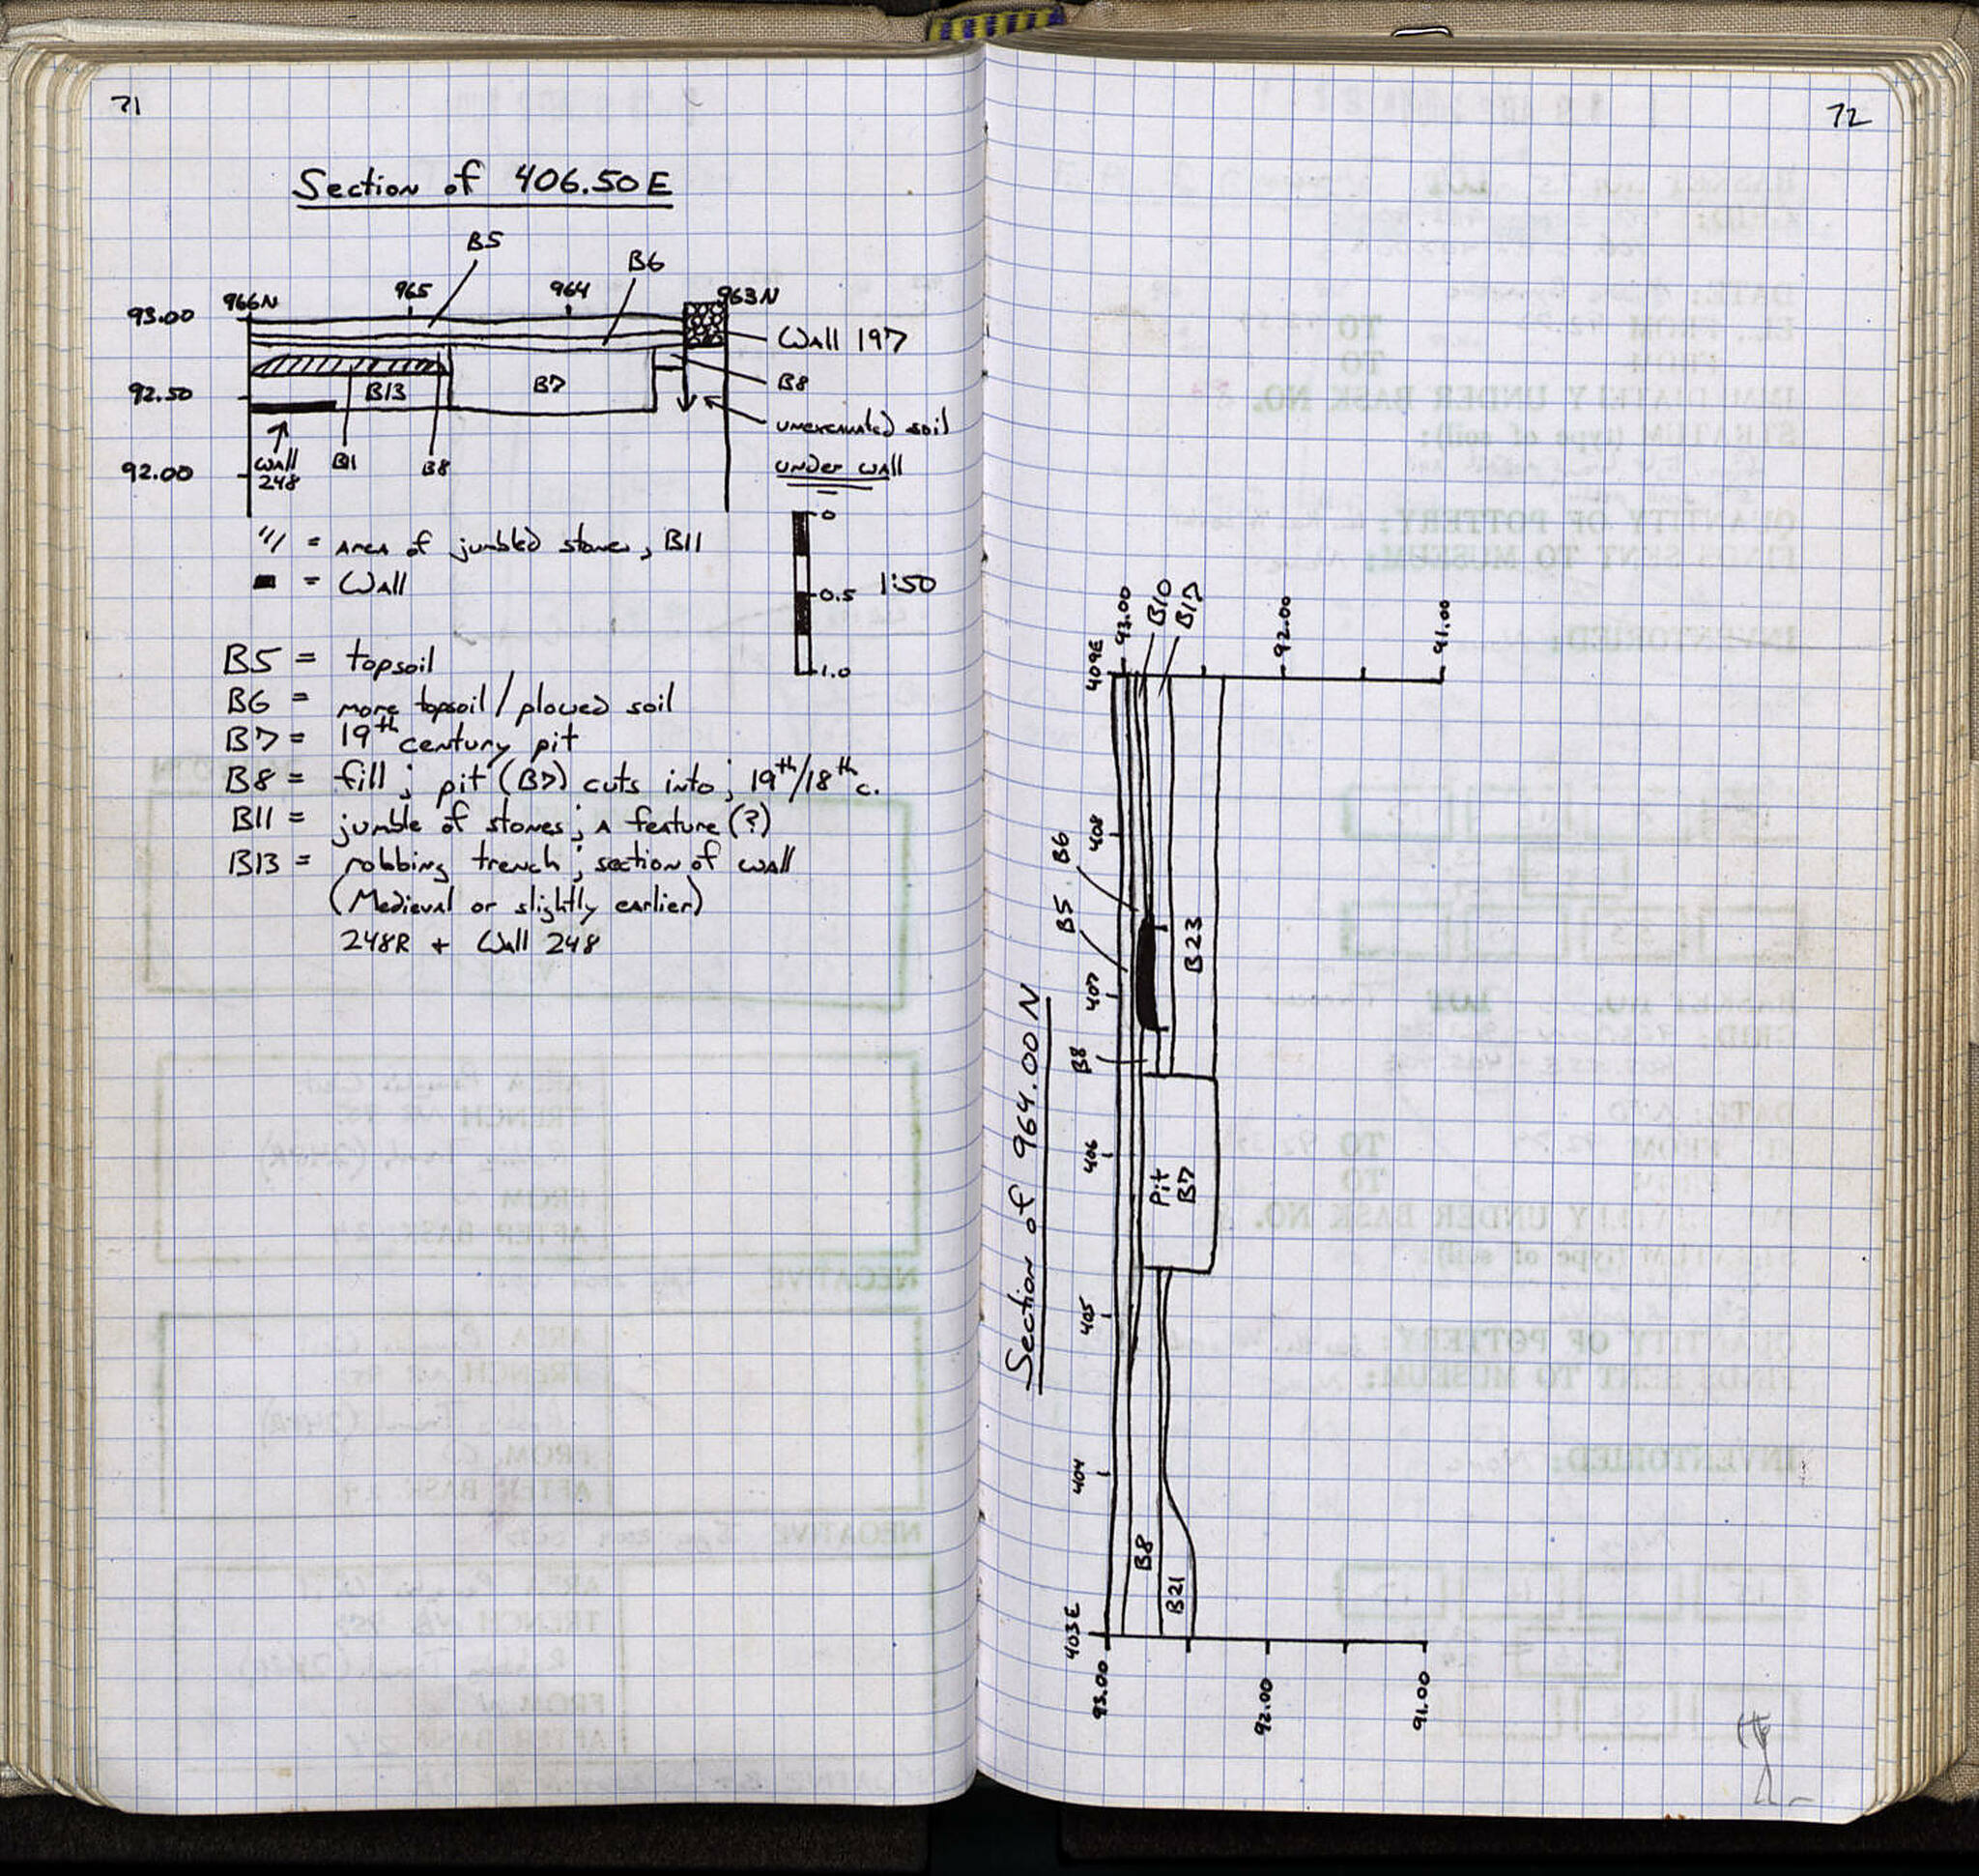 71
Section of 406.50E
B5
B6
966N 965 964 963N
93.00
Wall 197
B13 B7
B8
92.50
unexcavated soil
under wall
92.00
Wall
248
B11 B8
0
/// = area of jumbled stones, B11
= Wall
0.5 1:50
1.0
B5 = topsoil
B6 = more topsoil/plowed soil
B7 = 19th century pit
B8 = fill; pit (B7) cuts into; 19th/18th c.
B11 = jumble of stones; a feature (?)
B13 = robbing trench; section of wall
(Medieval or slightly earlier)
248R + Wall 248
72
Section of 964.00N
93.00
B10
B17
92.00
91.00
409E
408
B6
B5
B23
407
B8
406
Pit
B7
405
404
B8
B21
403E
93.00
92.00
91.00